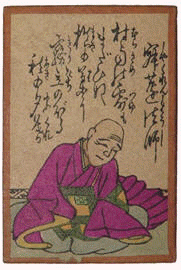 寂蓮法師
村雨の露も
まだひぬ
槙の葉に
霧立のぼる
秋の夕暮